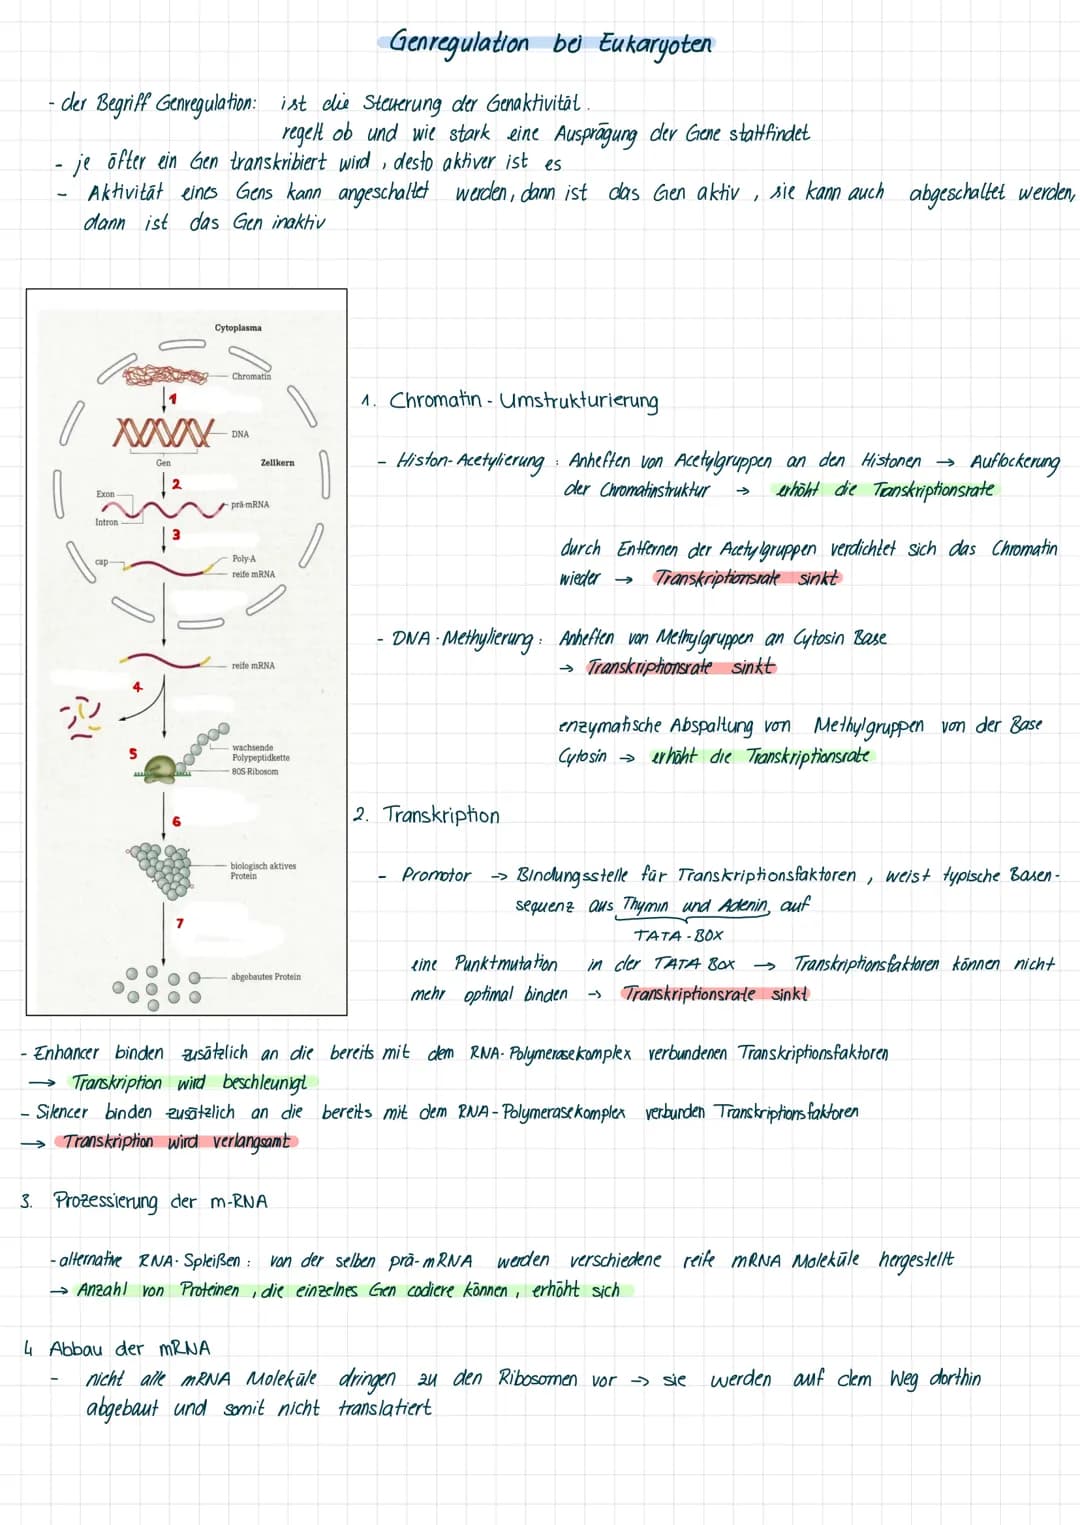 Genregulation bei Eukaryoten
- der Begriff Genregulation: ist die Steuerung der Genaktivität.
regelt ob und wie stark eine Ausprägung der Gene stattfindet
- je öfter ein Gen transkribiert wird, desto aktiver ist es
- Aktivität eines Gens kann angeschaltet werden, dann ist das Gen aktiv, sie kann auch abgeschaltet werden,
dann ist das Gen inaktiv
Cytoplasma
Chromatin
1
DNA
Gen
Zellkern
2
Exon
prä-mRNA
Intron
3
cap
Poly-A
reife mRNA
reife mRNA
4
5
wachsende
Polypeptidkette
80S-Ribosom
6
biologisch aktives
Protein
7
abgebautes Protein
1. Chromatin - Umstrukturierung
- Histon-Acetylierung: Anheften von Acetylgruppen an den Histonen → Auflockerung
der Chromatinstruktur → erhöht die Transkriptionsrate
durch Entfernen der Acetylgruppen verdichtet sich das Chromatin
wieder → Transkriptionsrate sinkt
- DNA-Methylierung: Anheften von Methylgruppen an Cytosin Base
→ Transkriptionsrate sinkt
enzymatische Abspaltung von Methylgruppen von der Base
Cytosin → erhöht die Transkriptionsrate
2. Transkription
- Promotor -> Bindungsstelle für Transkriptionsfaktoren, weist typische Basen-
sequenz aus Thymin und Adenin auf
TATA-BOX
eine Punktmutation in der TATA Box → Transkriptionsfaktoren können nicht
mehr optimal binden → Transkriptionsrate sinkt
- Enhancer binden zusätzlich an die bereits mit dem RNA-Polymerasekomplex verbundenen Transkriptionsfaktoren
→ Transkription wird beschleunigt
- Silencer binden zusätzlich an die bereits mit dem RNA-Polymerasekomplex verbunden Transkriptionsfaktoren
→ Transkription wird verlangsamt
3. Prozessierung der m-RNA
- alternative RNA-Spleißen: von der selben prä-mRNA werden verschiedene reife mRNA Moleküle hergestellt
→ Anzahl von Proteinen, die einzelnes Gen codiere können, erhöht sich
4 Abbau der mRNA
- nicht alle mRNA Moleküle dringen zu den Ribosomen vor → sie werden auf dem Weg dorthin
abgebaut und somit nicht translatiert